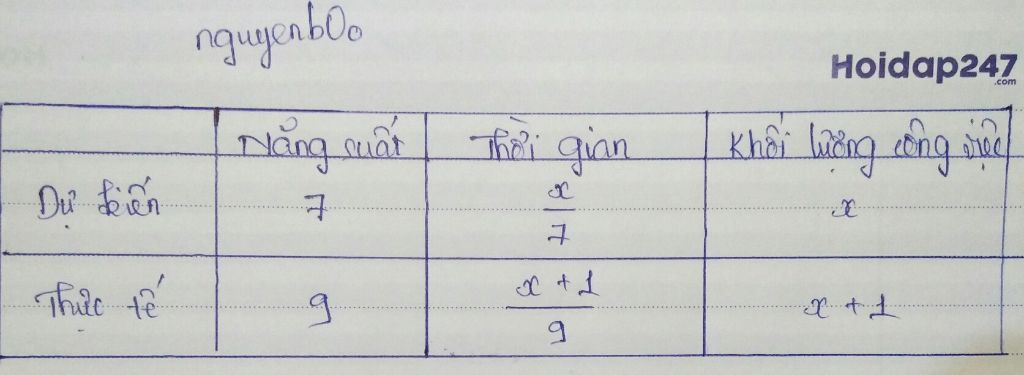 nguyenb00
Hoidap247
.com
Năng suất Thời gian Khối lượng công việc
Dự kiến 7 x/7 x
Thực tế 9 x + 1/9 x + 1